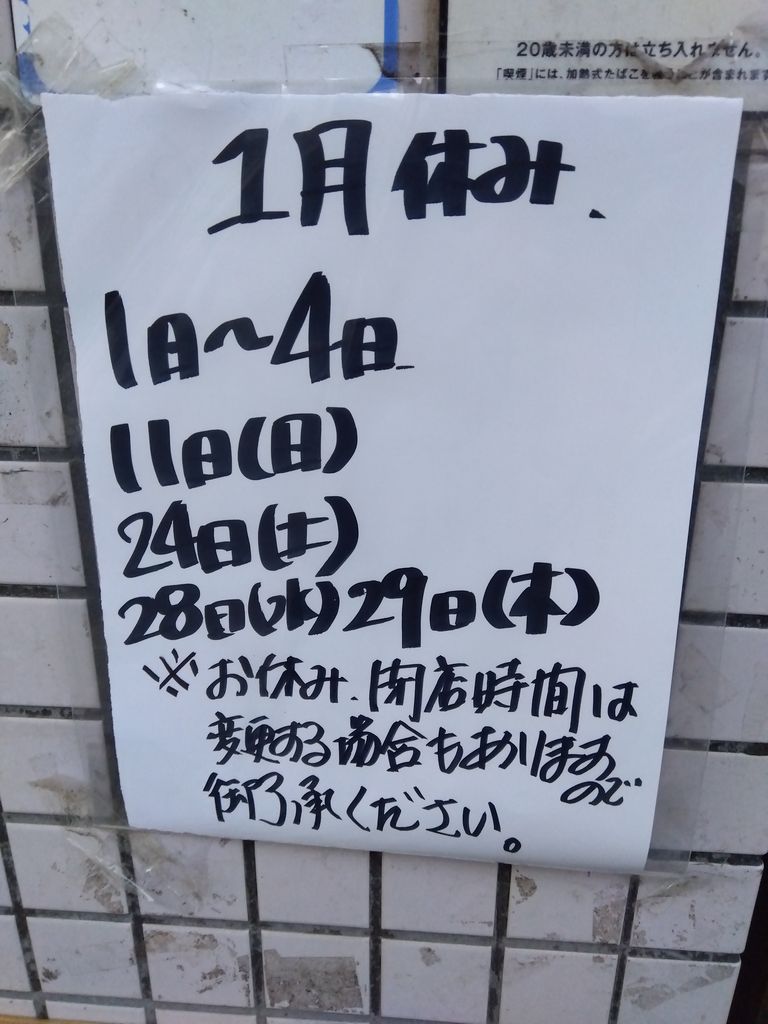 20歳未満の方は立ち入れません。
「喫煙」には、加熱式たばこを が含まれます
1月休み.
1日〜4日
11日(日)
24日(土)
28日(水)29日(木)
※お休み、閉店時間は
変更する場合もありますので
御了承ください。